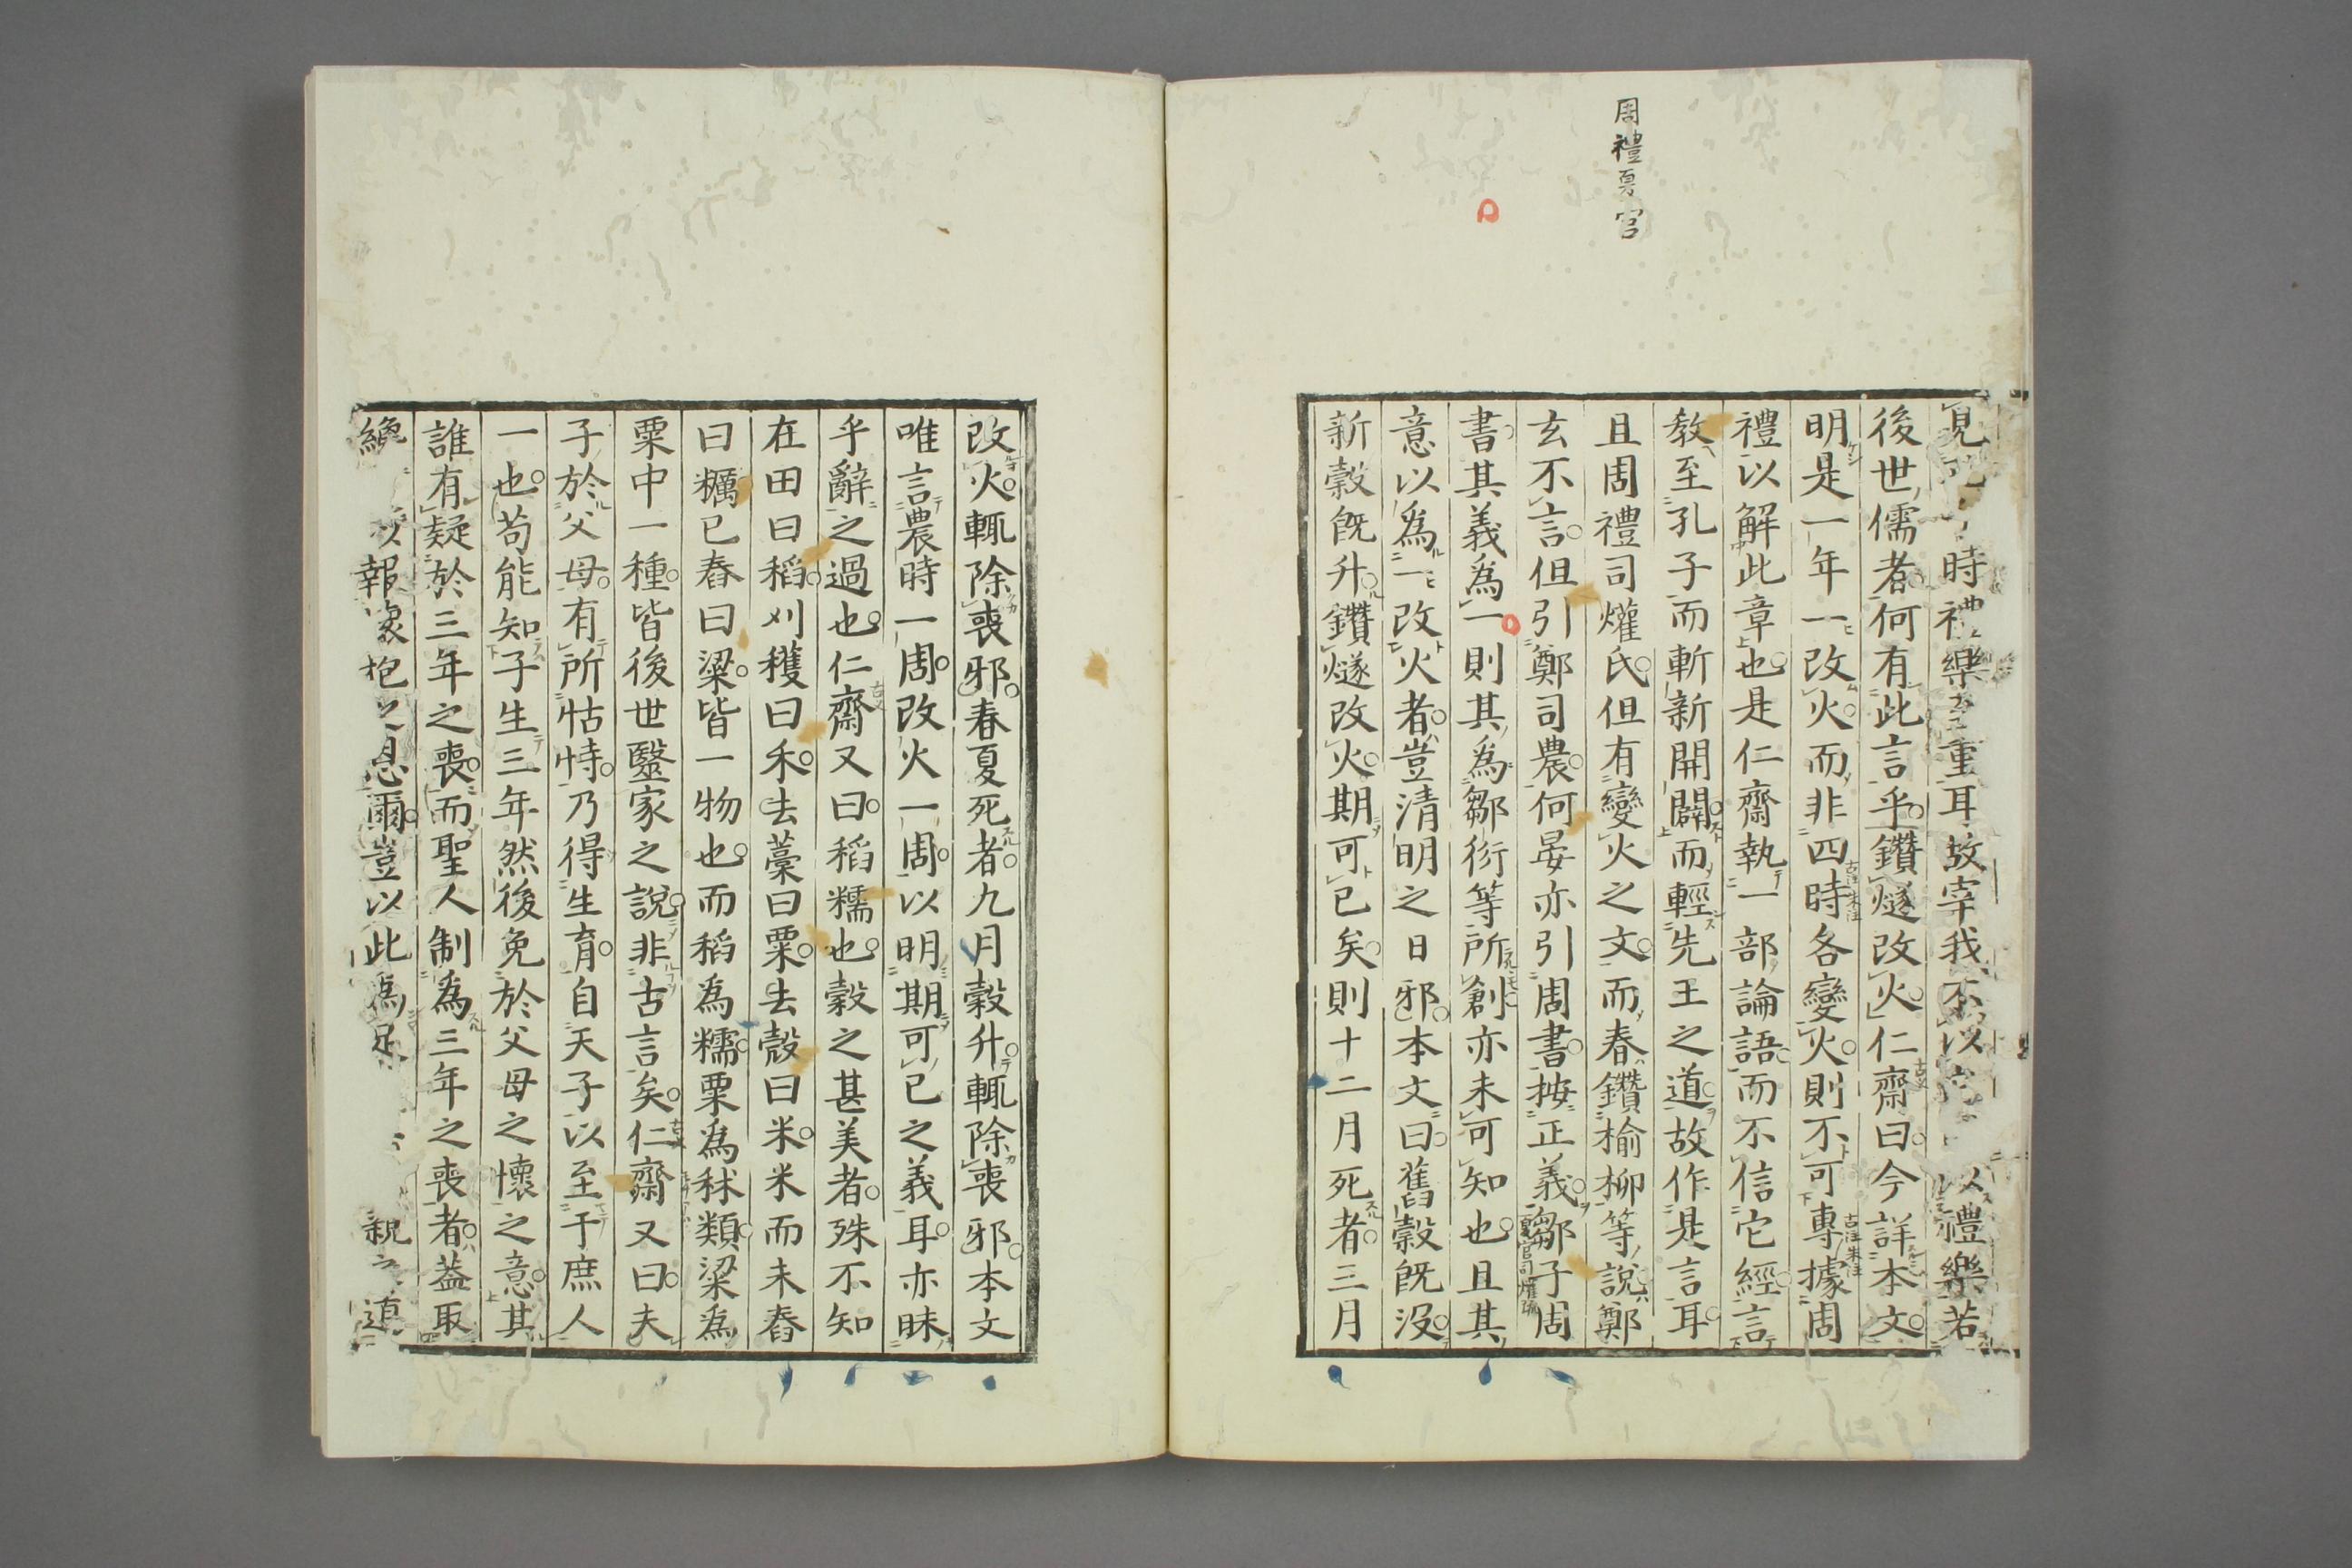 周禮夏官
見 時禮樂至重耳故宰我不以 以禮樂若
後世儒者何有此言乎鑽燧改火仁齋曰今詳本文
明是一年一改火而非四時各變火則不可專據周
禮以解此章也是仁齋執一部論語而不信它經言
教至孔子而斬新開闢而輕先王之道故作是言耳
且周禮司爟氏但有變火之文而春鑽榆柳等說鄭
玄不言但引鄭司農何晏亦引周書按正義鄒子周
書其義爲一則其爲鄒衍等所創亦未可知也且其
意以爲一改火者豈清明之日邪本文曰舊穀既没
新穀既升鑽燧改火期可已矣則十二月死者三月
改火輒除喪邪春夏死者九月穀升輒除喪邪本文
唯言農時一周改火一周以明期可已之義耳亦昧
乎辭之過也仁齋又曰稻糯也穀之甚美者殊不知
在田曰稻刈穫曰禾去藁曰粟去殼曰米米而未舂
曰糲已舂曰粱皆一物也而稻爲糯粟爲秫類粱爲
粟中一種皆後世醫家之說非古言矣仁齋又曰夫
子於父母有所怙恃乃得生育自天子以至于庶人
一也苟能知子生三年然後免於父母之懷之意其
誰有疑於三年之喪而聖人制爲三年之喪者蓋取
纔 以報懷抱之恩爾豈以此爲足 親之道